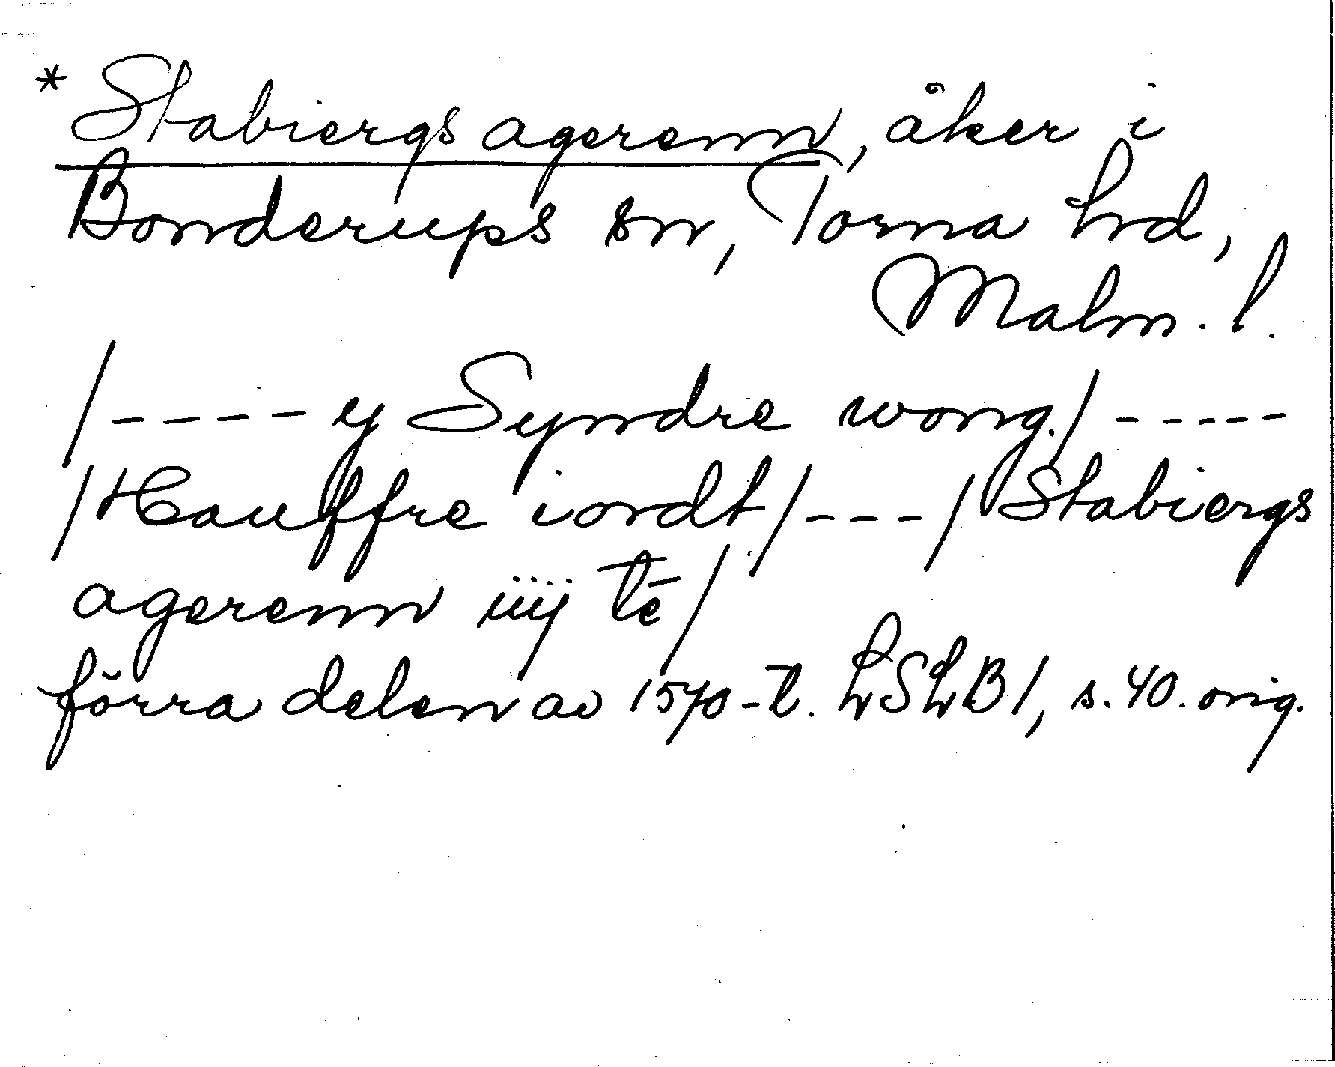 * Stabiergs agerenn, åker i
Bonderups sn, Torna hd,
Malm. l.
/---- y Syndre wong./-----
/Hauffre iordt/---/Stabiergs
agerenn iiij tē/
förra delen av 1570-t. LSLB1, s. 40. orig.